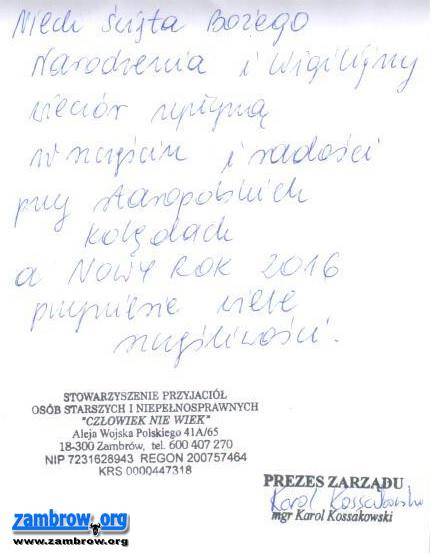 Niech święta Bożego
Narodzenia i wigilijny
wieczór upłyną
w szczęściu i radości
przy staropolskich
kolędach
a NOWY ROK 2016
przyniesie wiele
szczęśliwości.
STOWARZYSZENIE PRZYJACIÓŁ
OSÓB STARSZYCH I NIEPEŁNOSPRAWNYCH
"CZŁOWIEK NIE WIEK"
Aleja Wojska Polskiego 41A/65
18-300 Zambrów, tel. 600 407 270
NIP 7231628943 REGON 200757464
KRS 0000447318
PREZES ZARZĄDU
Karol Kossakowski
mgr Karol Kossakowski
zambrow.org
www.zambrow.org